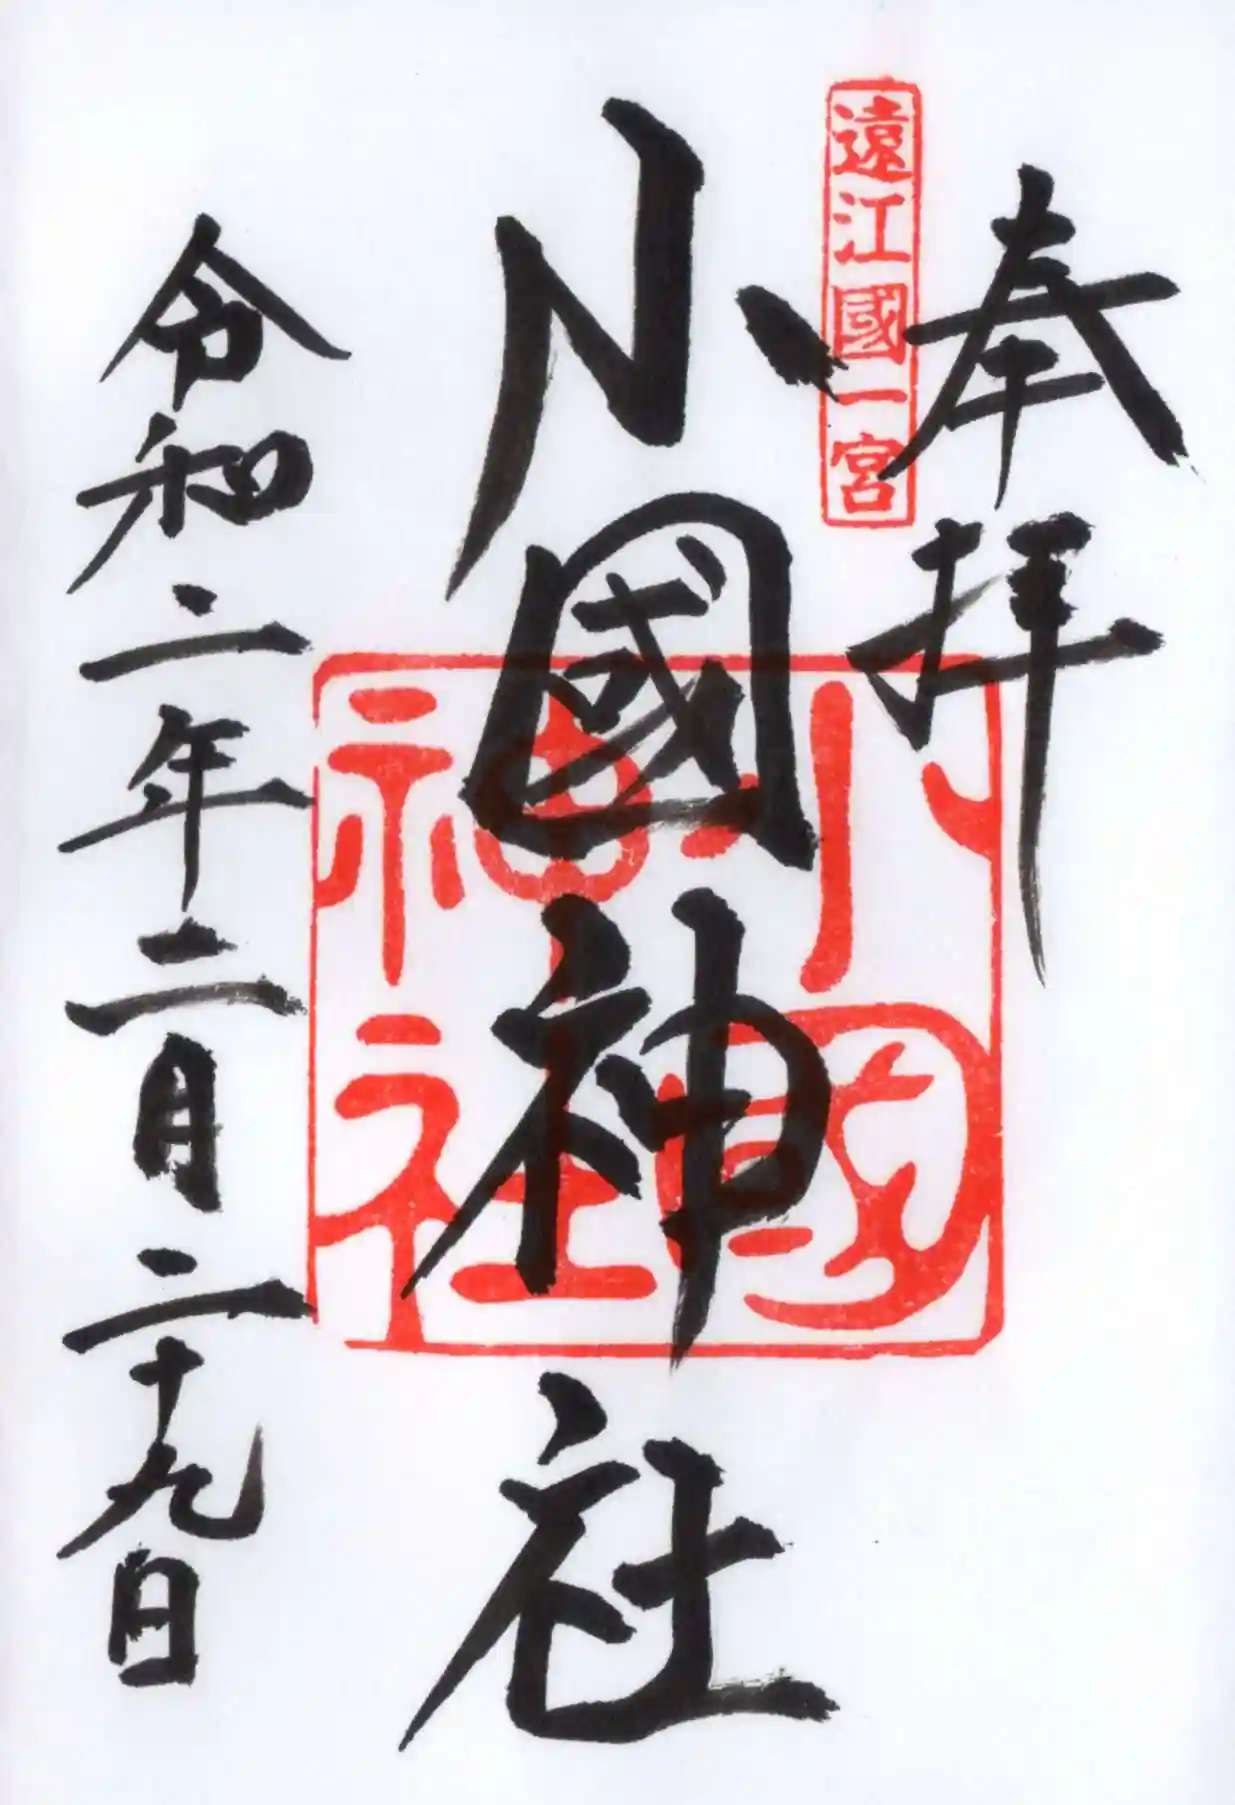 奉拝
遠江國一宮
小國神社
小國
神社
令和二年二月二十九日